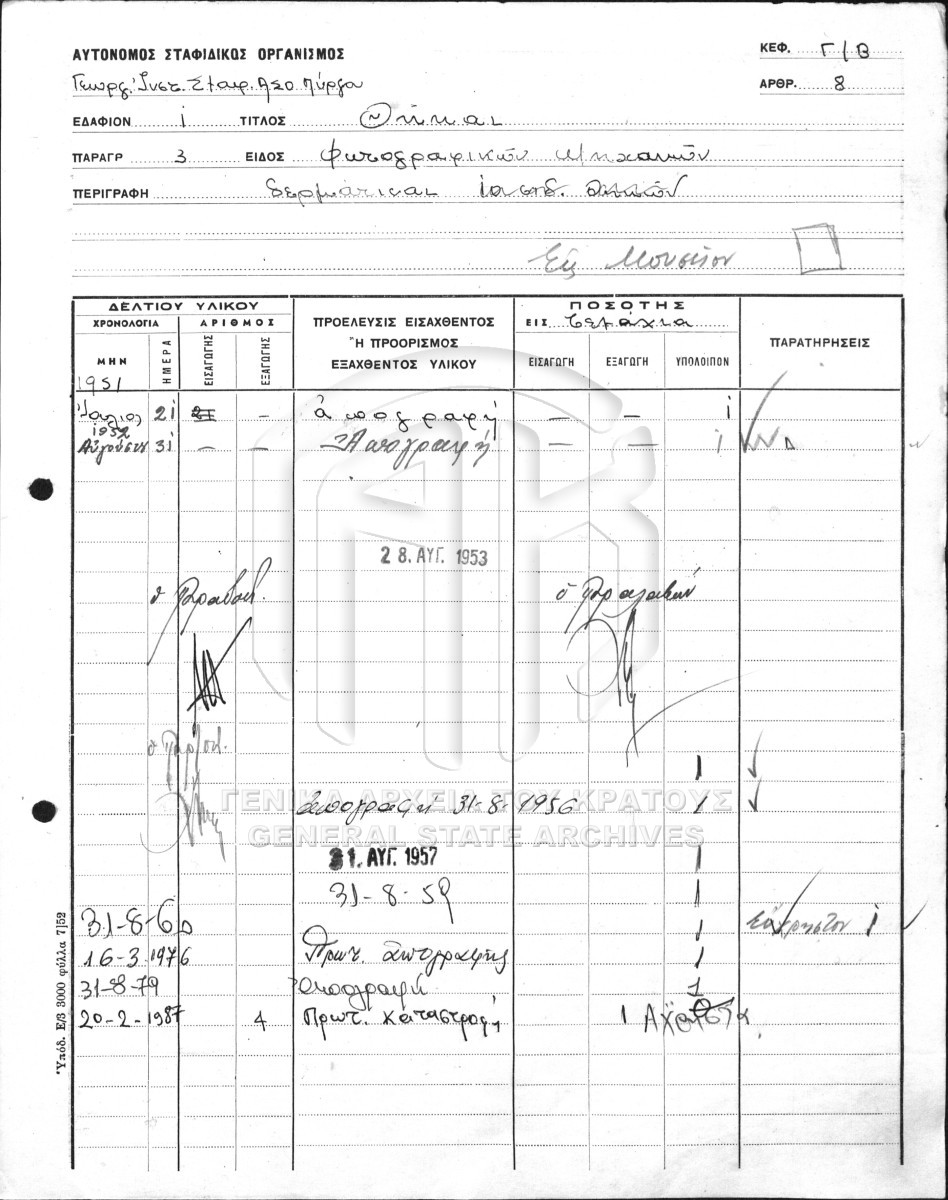 ΑΥΤΟΝΟΜΟΣ ΣΤΑΦΙΔΙΚΟΣ ΟΡΓΑΝΙΣΜΟΣ
ΚΕΦ. Γ/Β
Γεωργ. Ινστ. Σταφ. ΑΣΟ Πύργου
ΑΡΘΡ. 8
ΕΔΑΦΙΟΝ 1 ΤΙΤΛΟΣ Θήκαι
ΠΑΡΑΓΡ 3 ΕΙΔΟΣ φωτογραφικών Μηχανών
ΠΕΡΙΓΡΑΦΗ δερμάτιναι
Εις Μουσείον
ΔΕΛΤΙΟΥ ΥΛΙΚΟΥ
ΧΡΟΝΟΛΟΓΙΑ
ΑΡΙΘΜΟΣ
ΜΗΝ
ΗΜΕΡΑ
ΕΙΣΑΓΩΓΗΣ
ΕΞΑΓΩΓΗΣ
ΠΡΟΕΛΕΥΣΙΣ ΕΙΣΑΧΘΕΝΤΟΣ
Ἢ ΠΡΟΟΡΙΣΜΟΣ
ΕΞΑΧΘΕΝΤΟΣ ΥΛΙΚΟΥ
ΠΟΣΟΤΗΣ
ΕΙΣ Τεμάχια
ΕΙΣΑΓΩΓΗ ΕΞΑΓΩΓΗ ΥΠΟΛΟΙΠΟΝ
ΠΑΡΑΤΗΡΗΣΕΙΣ
1951
Ιούλιος 21 – ἀπογραφή – – 1
1952
Αὐγούστου 31 – – Ἀπογραφή – – 1
28. ΑΥΓ. 1953
ὁ Παραδούς. ὁ Παραλαβών
1
ἀπογραφή 31-8-1956 1
ΓΕΝΙΚΑ ΑΡΧΕΙΑ ΤΟΥ ΚΡΑΤΟΥΣ
GENERAL STATE ARCHIVES
31. ΑΥΓ. 1957 1
31-8-59 1
31-8-60 1 Εὔχρηστον 1
16-3-1976 Πρωτ. ἀπογραφῆς 1
31-8-79 Ἀπογραφή 1
20-2-1987 4 Πρωτ. Καταστροφή 1
Ὑπόδ. Ε/3 3000 φύλλα 7|52